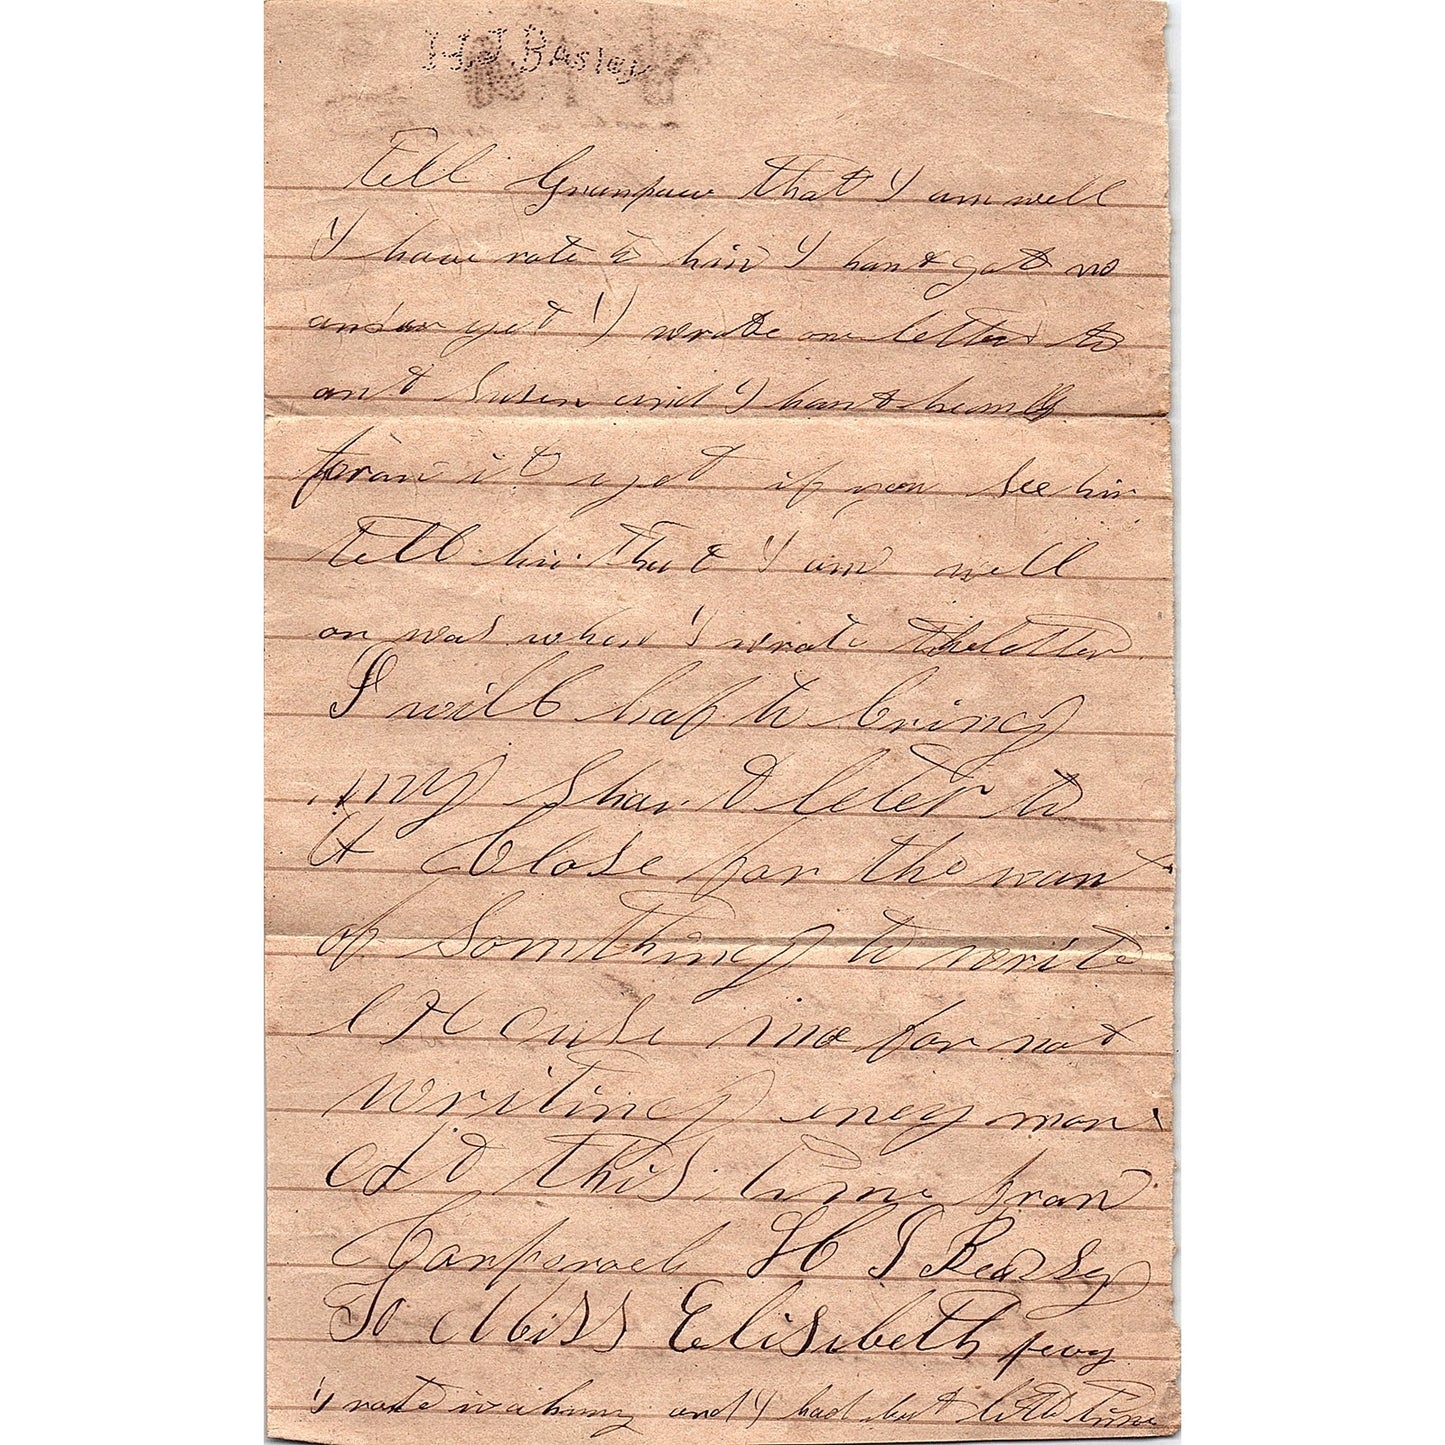 H.J. Basley
Tell Granpaw that I am well
I have rote to him I hant got no
ansar yet I wrote one letter to
ant Susen and I hant heard
from it yet if you see him
tell him that I am well
or was when I wrote the letter
I will haf to bring
my short leter to
A Close for the want
of Something to write
exCuse me for not
writing eney mor
At this time from
Corporel H J Beasley
To Miss Elisibeth
I rote in a hury and I had but little time